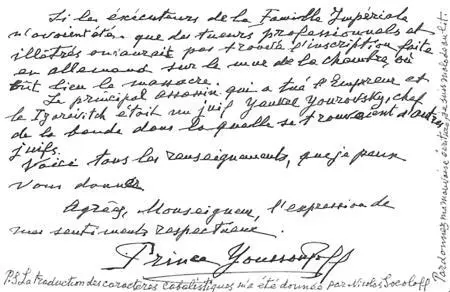 Si les exécuteurs de la Famille Impériale
n'avoient été que des tueurs professionnels et
illétrés on aurait pas trouvé l'inscription faite
en allemand sur le mur de la chambre, où
eut lieu le massacre.
Le principal assassin qui a tué l'Empreur et
le Tzarévitch était un juif Yankel Yourovsky, chef
de la bande dans laquelle se trouvoient d'autres
juifs.
Voici tous les renseignements, que je peux
vous donner
Agréez, Monseigneur, l'expression de
mes sentiments respectueux.
Prince Youssoupoff
P.S. La traduction des caractères cabalistiques m'a été donnée par Nicolas Socoloff
Pardonnez ma mauvaise écriture, je suis malade au lit.